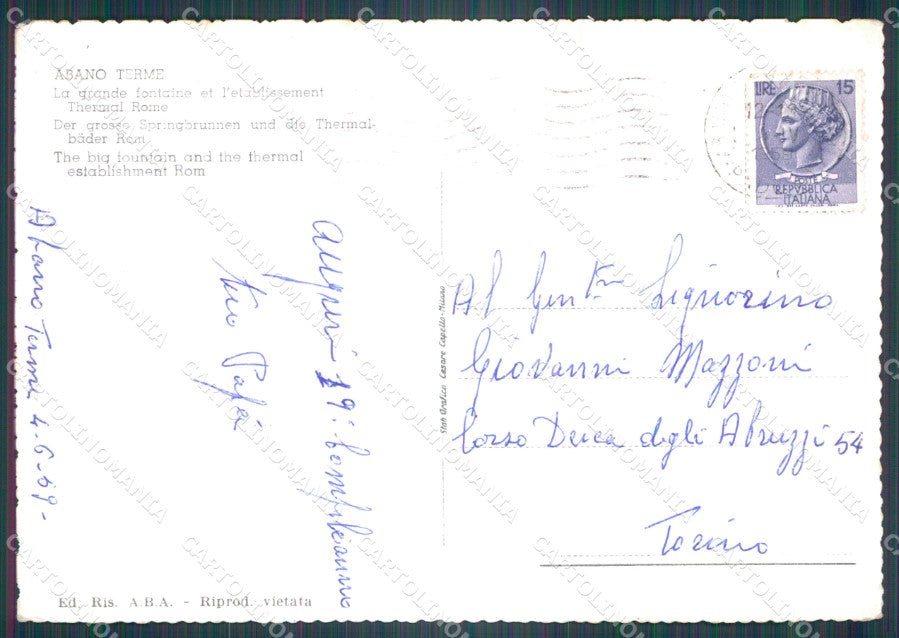 ABANO TERME
La grande fontaine et l'etablissement
Thermal Rome
Der grosse Springbrunnen und die Thermal-
bäder Rom
The big fountain and the thermal
establishment Rom
LIRE 15
POSTE
REPVBBLICA
ITALIANA
Abano Terme 4-6-59-
Auguri 19º compleanno
tuo Papà
Stab Grafico Cesare Capello-Milano
Al Gent Signorino
Giovanni Mazzoni
Corso Duca degli Abruzzi 54
Torino
Ed. Ris. A.B.A. - Riprod. vietata
CARTOLINOMANIA